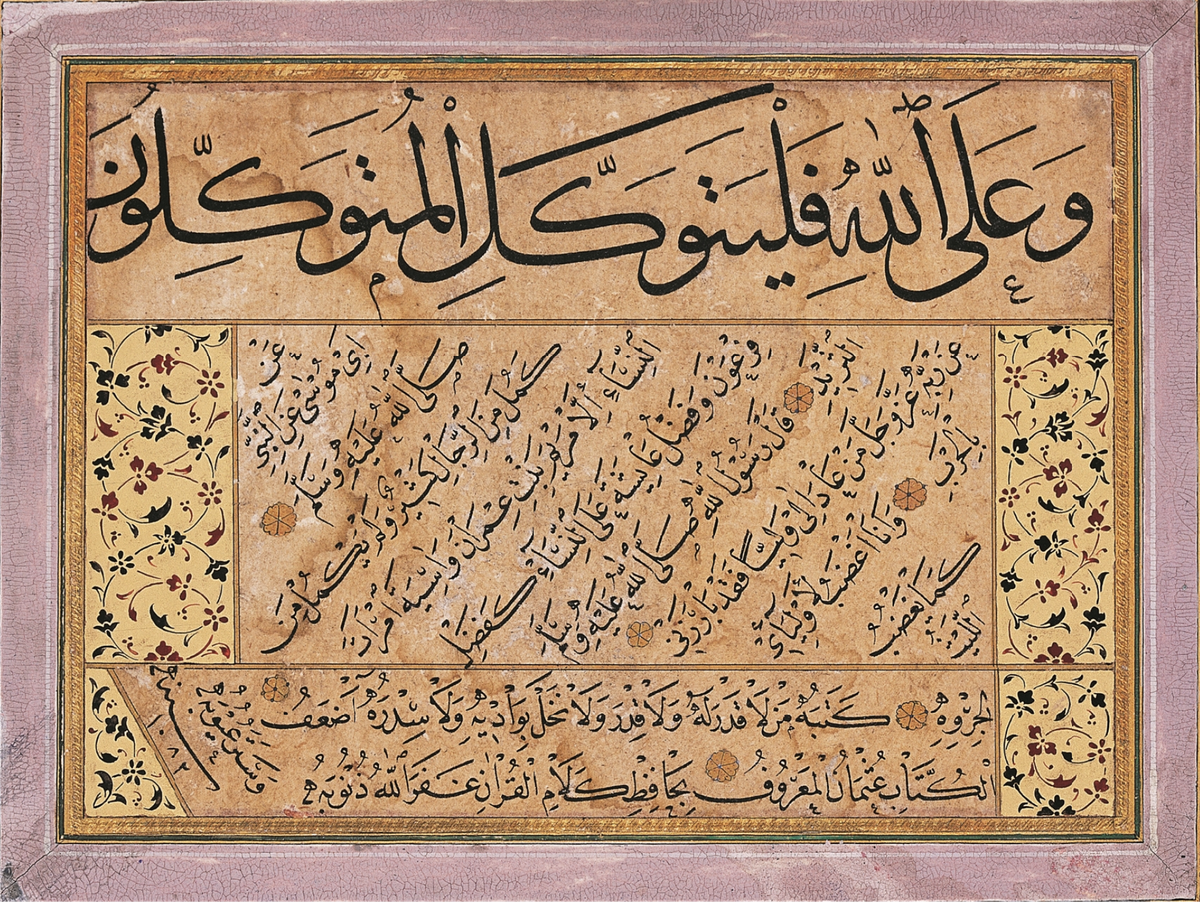 وَعَلَى اللّٰهِ فَلْيَتَوَكَّلِ الْمُتَوَكِّلُونَ
عن
ابي موسى عن النبي
صلى الله عليه وسلم
كمل من الرجال كثير ولم يكمل من
النساء الا مريم بنت عمران واسية امراة
فرعون وفضل عايشة على النساء كفضل
الثريد قال رسول الله صلى الله عليه وسلم
عن ربه عز وجل من عادى لي وليا فقد بارزني
بالحرب وانا اغضب لاوليائي
كما يغضب
الليث
الجروه كتبه من لا قدر له ولا قدر ولا نخل بواديه ولا سدره اضعف
الكتاب عثمان المعروف بحافظ كلام القران غفر الله ذنوبه
وستر عيوبه
سنه ١٠٨٢